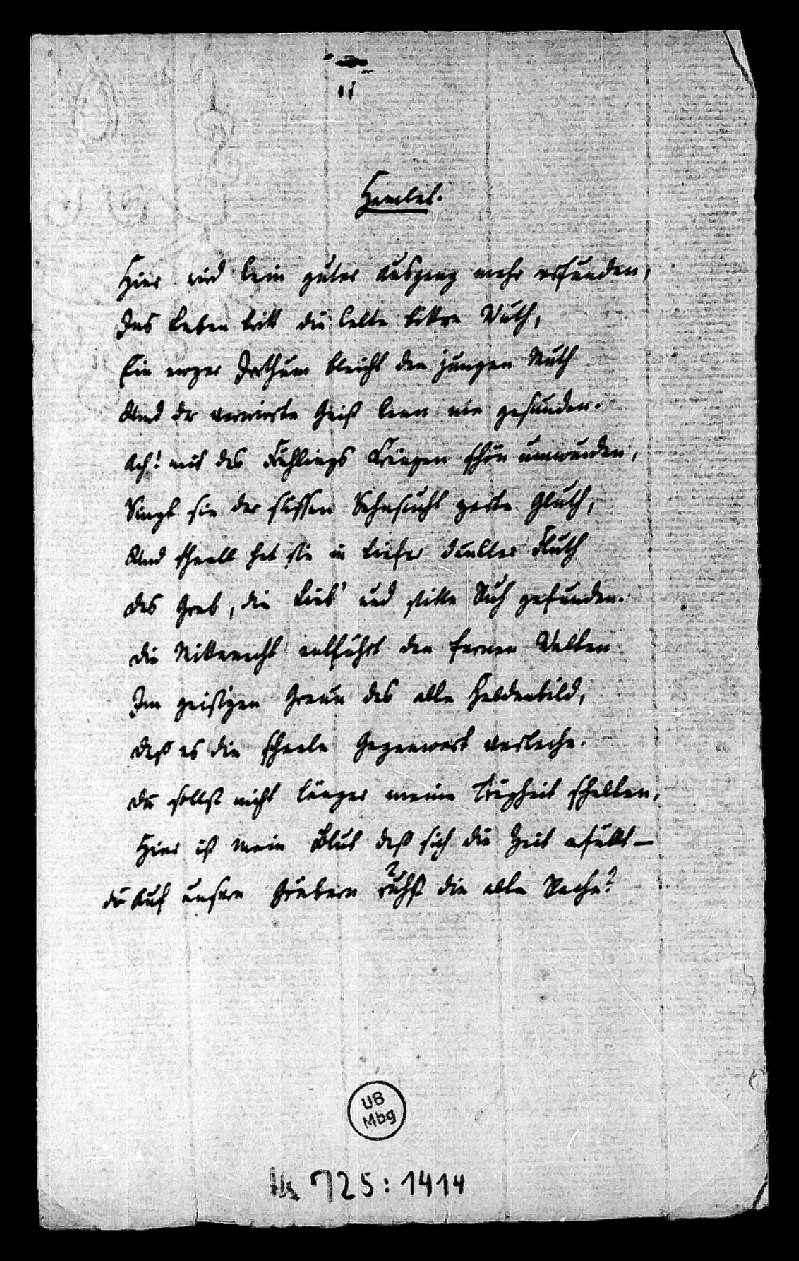 11
Hamlet.
Hier wird kein guter Ausgang mehr erfunden,
Das Leben tritt die kalte bittre Wuth,
Ein arger Irrthum bleicht den jungen Muth
Und der verwirrte Geist kann nie gesunden.
Ach! mit des Frühlings Kränzen schön umwunden,
Singt sie der süssen Sehnsucht zarte Gluth,
Und schnell hat sie in tiefer dunkler Fluth
Das Grab, die Lieb' und stille Ruh gefunden.
Die Mitternacht entführt den fernen Welten
Im geistigen Graun das alte Heldenbild,
Daß es die Gegenwart verlache.
Du sollst nicht länger meine Trägheit schelten,
Hier ist mein Blut daß sich die Zeit erfüllt—
du Auf unsern Gräbern ruhst die alte Rache?
UB
Mbg
Hs 725:1414